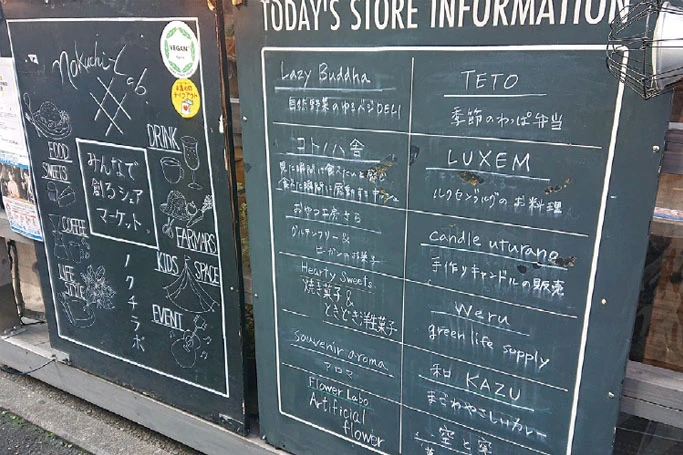 Nokuchi Lab
VEGAN
DRINK
FOOD
SWEETS
みんなで
創るシェア
マーケット
FARMARS
COFFEE
LIFE
STYLE
KIDS SPACE
EVENT
ノクチラボ
TODAY'S STORE INFORMATION
Lazy Buddha
自然野菜のゆるベジDELI
コトノハ舎
おやつ工房さら
グルテンフリー &
ビーガンのお菓子
Hearty Sweets
焼き菓子 &
ときどき洋生菓子
souvenir aroma
アロマ
Flower Labo
Artificial
flower
TETO
季節のわっぱ弁当
LUXEM
ルクセンブルグのお料理
candle uturana
手作りキャンドルの販売
Weru
green life supply
和 KAZU
空と実